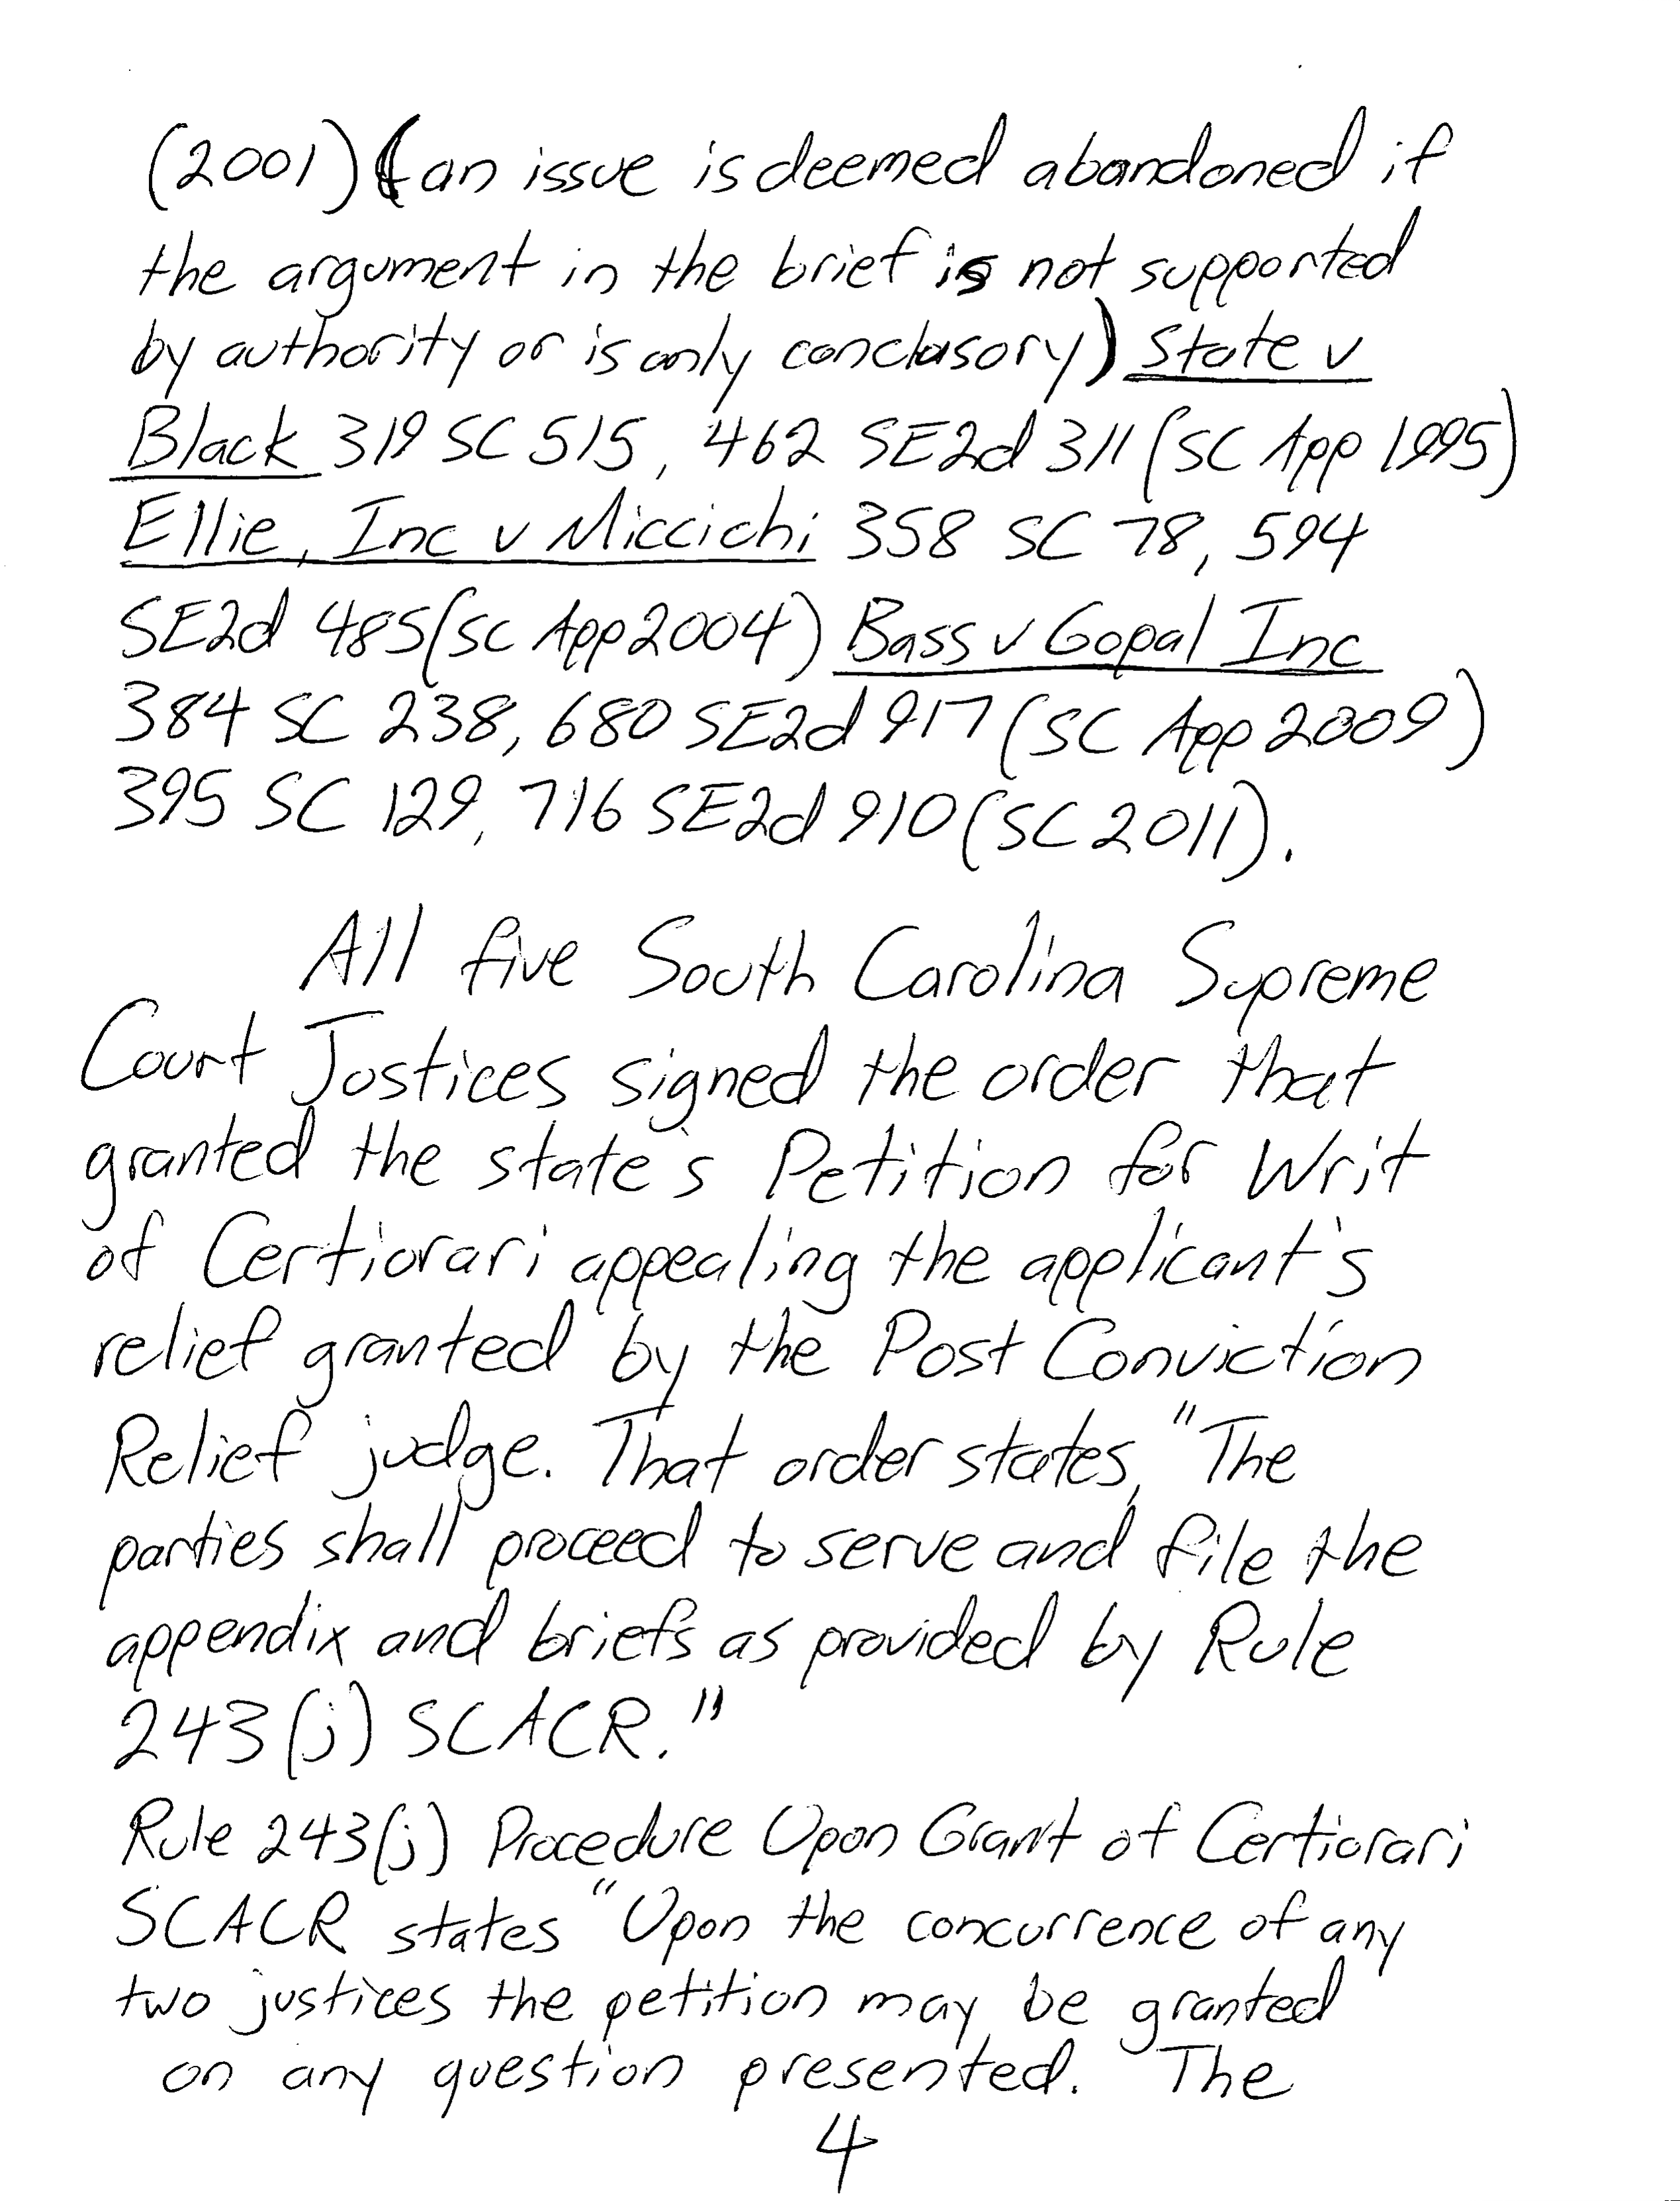 (2001) (an issue is deemed abandoned if
the argument in the brief is not supported
by authority or is only conclusory) State v
Black 319 SC 515, 462 SE2d 311 (SC App 1995)
Ellie, Inc v Miccichi 358 SC 78, 594
SE2d 485 (SC App 2004) Bass v Gopal Inc
384 SC 238, 680 SE2d 917 (SC App 2009)
395 SC 129, 716 SE2d 910 (SC 2011).
All five South Carolina Supreme
Court Justices signed the order that
granted the state's Petition for Writ
of Certiorari appealing the applicant's
relief granted by the Post Conviction
Relief judge. That order states, "The
parties shall proceed to serve and file the
appendix and briefs as provided by Rule
243(j) SCACR."
Rule 243(j) Procedure Upon Grant of Certiorari
SCACR states "Upon the concurrence of any
two justices the petition may be granted
on any question presented. The
4